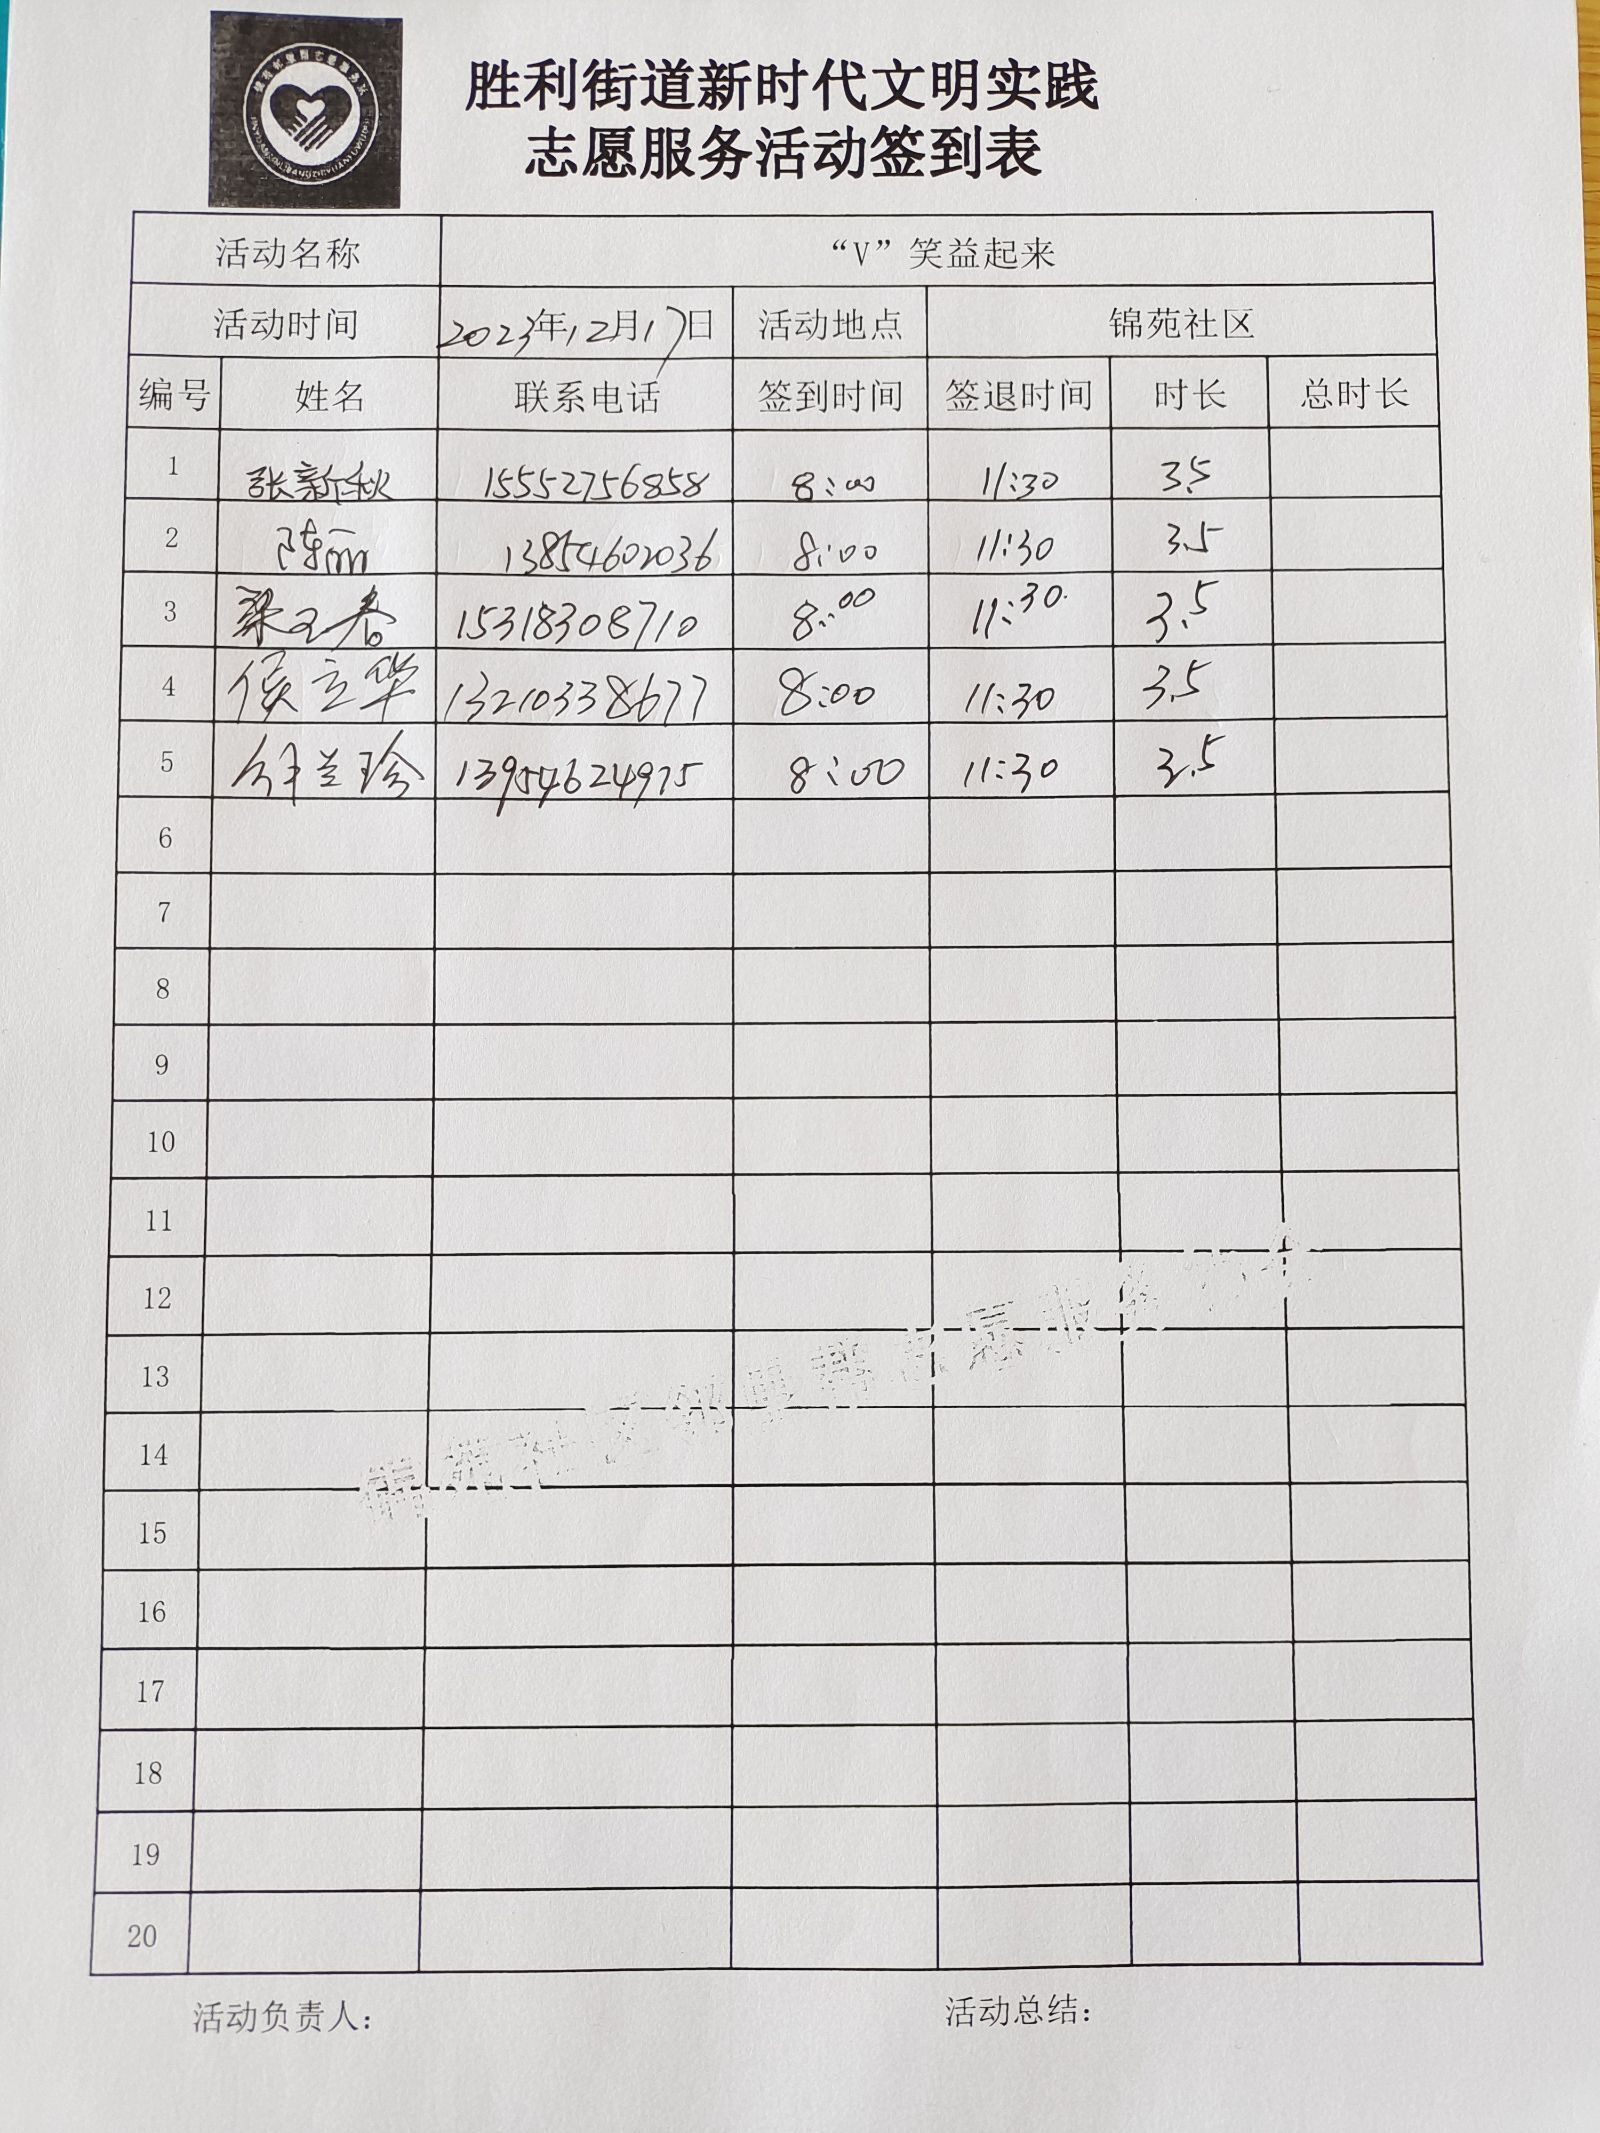 胜利街道新时代文明实践
志愿服务活动签到表
活动名称 “V”笑益起来
活动时间 2023年12月17日 活动地点 锦苑社区
编号 姓名 联系电话 签到时间 签退时间 时长 总时长
1 张新秋 15552756858 8:00 11:30 3.5
2 陈丽 13854602036 8:00 11:30 3.5
3 梁玉春 15318308710 8:00 11:30 3.5
4 侯立华 13210338677 8:00 11:30 3.5
5 兰珍 13954624975 8:00 11:30 3.5
6
7
8
9
10
11
12
13
14
15
16
17
18
19
20
活动负责人： 活动总结：